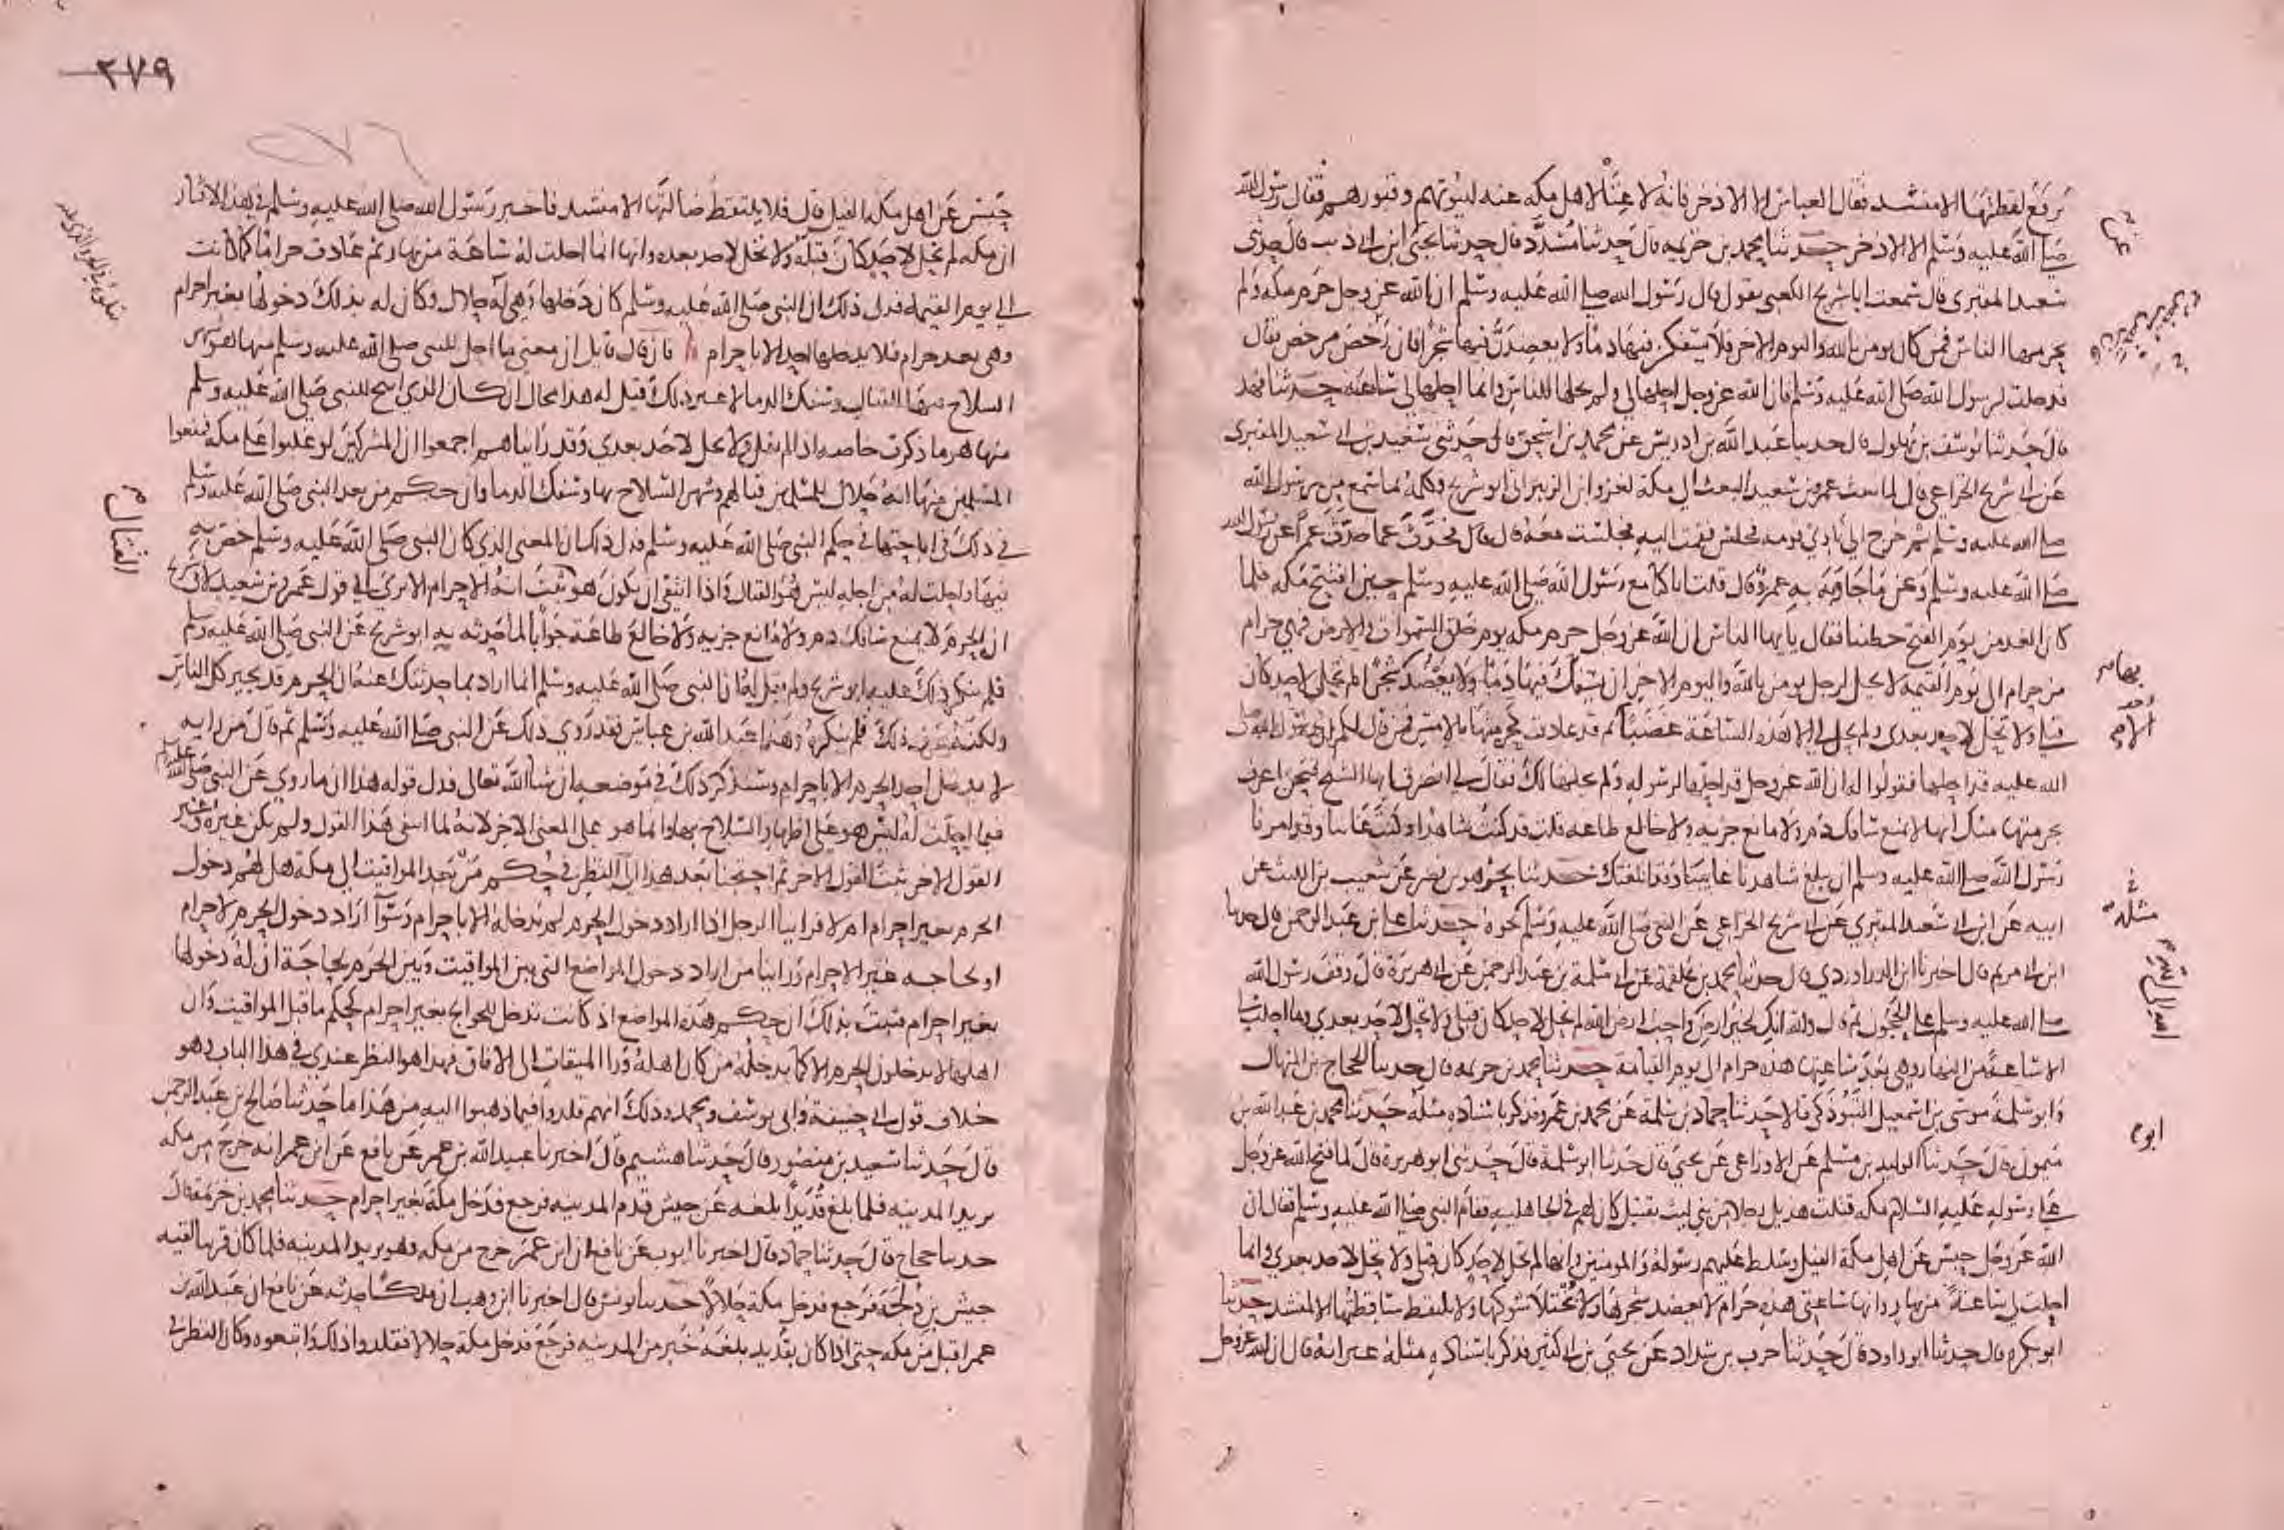 يرفع لقطتها الا منشد فقال العباس الا الاذخر فانه لا غنًا لاهل مكه عنه لبيوتهم وقبورهم فقال رسول الله
صلى الله عليه وسلم الا الاذخر حدثنا محمد بن خزيمه قال حدثنا مسدد قال حدثنا يحيى ابن ابي ذيب قال حدثني
سعيد المقبري قال سمعت ابا شريح الكعبي يقول قال رسول الله صلى الله عليه وسلم ان الله عز وجل حرم مكه ولم
يحرمها الناس فمن كان يومن بالله واليوم الاخر فلا يسفكن فيها دمًا ولا يعضدن فيها شجرًا فان رخص مرخص فقال
قد حلت لرسول الله صلى الله عليه وسلم فان الله عز وجل احلها لي ولم يحلها للناس وانما احلها لي ساعة حدثنا فهد
قال حدثنا يوسف بن بهلول قال حدثنا عبد الله بن ادريس عن محمد بن اسحق قال حدثني سعيد بن ابي سعيد المقبري
عن ابي شريح الخزاعي قال لما بعث عمرو بن سعيد البعث الى مكة لغزو ابن الزبير اتى ابو شريح فكلمه بما سمع من رسول الله
صلى الله عليه وسلم ثم خرج الى نادي قومه فجلس فقمت اليه فجلست معه قال فحدث عما حدث عمرًا عن رسول الله
صلى الله عليه وسلم وعن ما جاوبه به عمرو قال قلت انا كنا مع رسول الله صلى الله عليه وسلم حين افتتح مكه فلما
كان الغد من يوم الفتح خطبنا فقال يا يها الناس ان الله عز وجل حرم مكه يوم خلق السموات والارض فهي حرام
من حرام الى يوم القيمه لا يحل لرجل يومن بالله واليوم الاخر ان يسفك فيها دمًا ولا يعضد شجرًا لم تحل لاحد كان
قبلي ولا تحل لاحد بعدي ولم تحل لي الا هذه الساعة غضبًا ثم قد عادت كحرمتها بالامس فمن قال لكم ان رسول الله صلى
الله عليه قد احلها فقولوا له ان الله عز وجل قد احلها لرسوله ولم يحلها لك فقال لي انصرف ايها الشيخ فنحن اعرف
بحرمتها منك انها لا تمنع سافك دم ولا مانع جزيه ولا خالع طاعه قلت قد كنت شاهدا وكنت غايبا وقد امرنا
رسول الله صلى الله عليه وسلم ان يبلغ شاهدنا غايبنا وقد ابلغتك حدثنا بحر هو بن نصر عن شعيب بن الليث عن
ابيه عن ابن ابي سعيد المقبري عن ابي شريح الخزاعي عن النبي صلى الله عليه وسلم نحوه حدثنا علي بن عبد الرحمن قال حدثنا
ابن ابي مريم قال اخبرنا ابن الدراوردي قال حدثنا محمد بن علقمة عن ابي سلمة بن عبد الرحمن عن ابي هريرة قال وقف رسول الله
صلى الله عليه وسلم على الحجون ثم قال والله انك لخير ارض الله واحب ارض الله لم تحل لاحد كان قبلي ولا تحل لاحد بعدي وما احلت لي
الا ساعة من النهار وهي بعد ساعتها هذه حرام الى يوم القيامة حدثنا محمد بن خزيمه قال حدثنا الحجاج بن المنهال
وابو سلمة موسى بن اسمعيل التبوذكي قالا حدثنا حماد بن سلمة عن محمد بن عمرو فذكر باسناده مثله حدثنا محمد بن عبد الله بن
ميمون قال حدثنا الوليد بن مسلم عن الاوزاعي عن يحيى قال حدثنا ابو سلمة قال حدثني ابو هريرة قال لما فتح الله عز وجل
على رسوله عليه السلام مكه قتلت هذيل رجلا من بني ليث بقتيل كان لهم في الجاهليه فقام النبي صلى الله عليه وسلم فقال ان
الله عز وجل حبس عن اهل مكة الفيل وسلط عليهم رسوله والمومنين وانها لم تحل لاحد كان قبلي ولا تحل لاحد بعدي وانما
احلت لي ساعةً من نهار وانها ساعتي هذه حرام لا يعضد شجرها ولا يختلا شوكها ولا يلتقط ساقطتها الا لمنشد حدثنا
ابو بكره قال حدثنا ابو داود قال حدثنا حرب بن شداد عن يحيى بن ابي كثير فذكر باسناده مثله غير انه قال ان الله عز وجل
مثله
ابو
٢٧٩
حبس عن اهل مكه الفيل قال فلا يلتقط ضالتها الا منشد فاخبر رسول الله صلى الله عليه وسلم في هذه الاثار
ان مكه لم تحل لاحد كان قبله ولا تحل لاحد بعده وانها انما احلت له ساعة من نهار ثم عادت حرامًا كما كانت
الى يوم القيمه فدل ذلك ان النبي صلى الله عليه وسلم كان دخلها وهي له حلال وكان له بذلك دخولها بغير احرام
وهي بعد حرام فلا يدخلها احد الا باحرام فان قال قايل ان معنى ما احل للنبي صلى الله عليه وسلم منها هو شهر
السلاح فيها للقتال وسفك الدما لا غير ذلك قيل له هذا محال ان كان الذي ابيح للنبي صلى الله عليه وسلم
منها هو ما ذكرت خاصه اذا لم يقل ولا يحل لاحد بعدي وقد راينا هم اجمعوا ان المشركين لو غلبوا على مكه فمنعوا
المسلمين منها انه حلال للمسلمين قتالهم وشهر السلاح بها وسفك الدما وان حكم من بعد النبي صلى الله عليه وسلم
في ذلك في اباحتها في حكم النبي صلى الله عليه وسلم فدل ذلك ان المعنى الذي كان النبي صلى الله عليه وسلم خص به
فيها واحلت له من اجله ليس هو القتال واذا انتفى ان يكون هو ثبت انه الاحرام الا ترى الى قول عمرو بن سعيد لابي شريح
ان الحرم لا يمنع سافك دم ولا مانع جزيه ولا خالع طاعة جوابًا لما حدثه به ابو شريح عن النبي صلى الله عليه وسلم
فلم ينكر ذلك عليه ابو شريح ولم يقل له ان النبي صلى الله عليه وسلم انما اراد بما حدثتك عنه ان الحرم قد يجير كل الناس
ولكنه عرف ذلك فلم ينكره وهذا عبد الله بن عباس فقد روي ذلك عن النبي صلى الله عليه وسلم ثم قال من رايه
لا يدخل احد الحرم الا باحرام وسنذكر ذلك في موضعه ان شا الله تعالى فدل قوله هذا ان ما روي عن النبي صلى الله عليه وسلم
فيما احلت له ليس هو على اظهار السلاح بها وانما هو على المعنى الاخر لانه لما انتفى هذا القول ولم يكن غيره وغير
القول الاخر ثبت القول الاخر ثم احتجنا بعد هذا الى النظر في حكم من بعد المواقيت الى مكة هل لهم دخول
الحرم بغير احرام ام لا فراينا الرجل اذا اراد دخول الحرم لم يدخله الا باحرام وسوآ اراد دخول الحرم لاحرام
او لحاجه غير الاحرام وراينا من اراد دخول المواضع التي بين المواقيت وبين الحرم لحاجة ان له دخولها
بغير احرام فثبت بذلك ان حكم هذه المواضع اذ كانت تدخل للحوايج بغير احرام كحكم ما قبل المواقيت وان
اهلها لا يدخلون الحرم الا كما يدخله من كان اهله ورا الميقات الى الافاق فهذا هو النظر عندي في هذا الباب وهو
خلاف قول ابي حنيفة وابي يوسف ومحمد وذلك انهم قلدوا فيما ذهبوا اليه من هذا ما حدثنا صالح بن عبد الرحمن
قال حدثنا سعيد بن منصور قال حدثنا هشيم قال اخبرنا عبيد الله بن عمر عن نافع عن ابن عمر انه خرج من مكه
يريد المدينه فلما بلغ قُديدًا بلغه عن جيش قدم المدينه فرجع فدخل مكة بغير احرام حدثنا محمد بن خزيمة قال
حدثنا حجاج قال حدثنا حماد قال اخبرنا ايوب عن نافع ان ابن عمر خرج من مكه وهو يريد المدينه فلما كان قريبا لقيه
جيش بن دلجة فرجع فدخل مكة حلالًا حدثنا يونس قال اخبرنا ابن وهب ان مالكًا حدثه عن نافع ان عبد الله بن
عمر اقبل من مكه حتى اذا كان بقديد بلغه خبر من المدينه فرجع فدخل مكة حلالا فقلدوا ذلك واتبعوه وكان النظر في
القتال